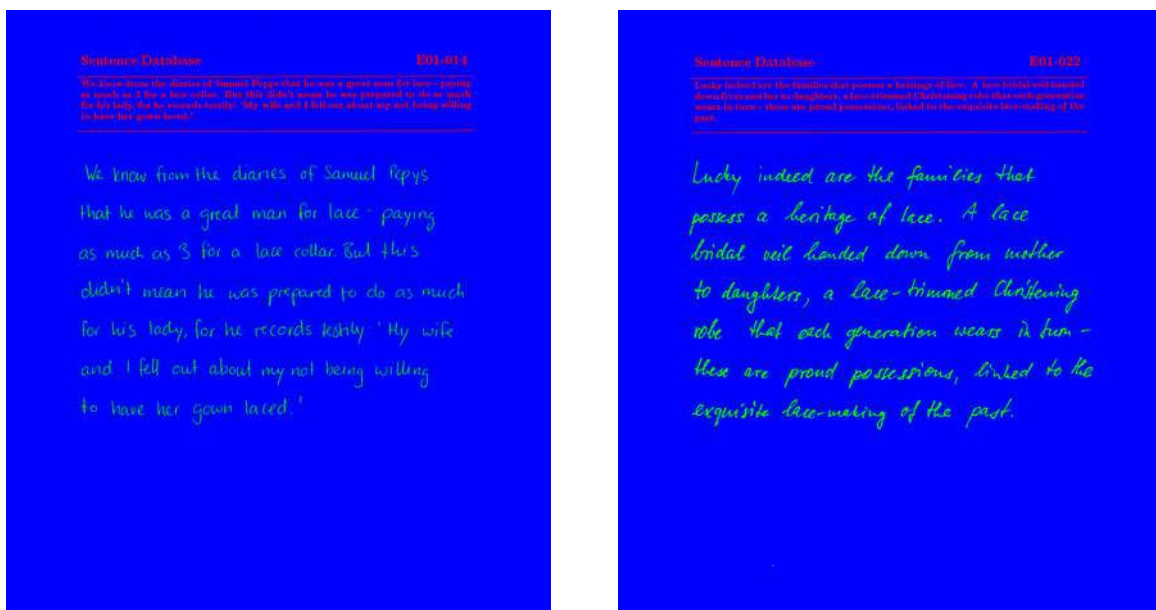 Sentence Database E01-014
We know from the diaries of Samuel Pepys that he was a great man for lace - paying
as much as 3 for a lace collar. But this didn't mean he was prepared to do as much
for his lady, for he records testily: 'My wife and I fell out about my not being willing
to have her gown laced.'
We know from the diaries of Samuel Pepys
that he was a great man for lace - paying
as much as 3 for a lace collar. But this
didn't mean he was prepared to do as much
for his lady, for he records testily: 'My wife
and I fell out about my not being willing
to have her gown laced.'
Sentence Database E01-022
Lucky indeed are the families that possess a heritage of lace. A lace bridal veil handed
down from mother to daughters, a lace-trimmed Christening robe that each generation
wears in turn - these are proud possessions, linked to the exquisite lace-making of the
past.
Lucky indeed are the families that
possess a heritage of lace. A lace
bridal veil handed down from mother
to daughters, a lace-trimmed Christening
robe that each generation wears in turn -
these are proud possessions, linked to the
exquisite lace-making of the past.